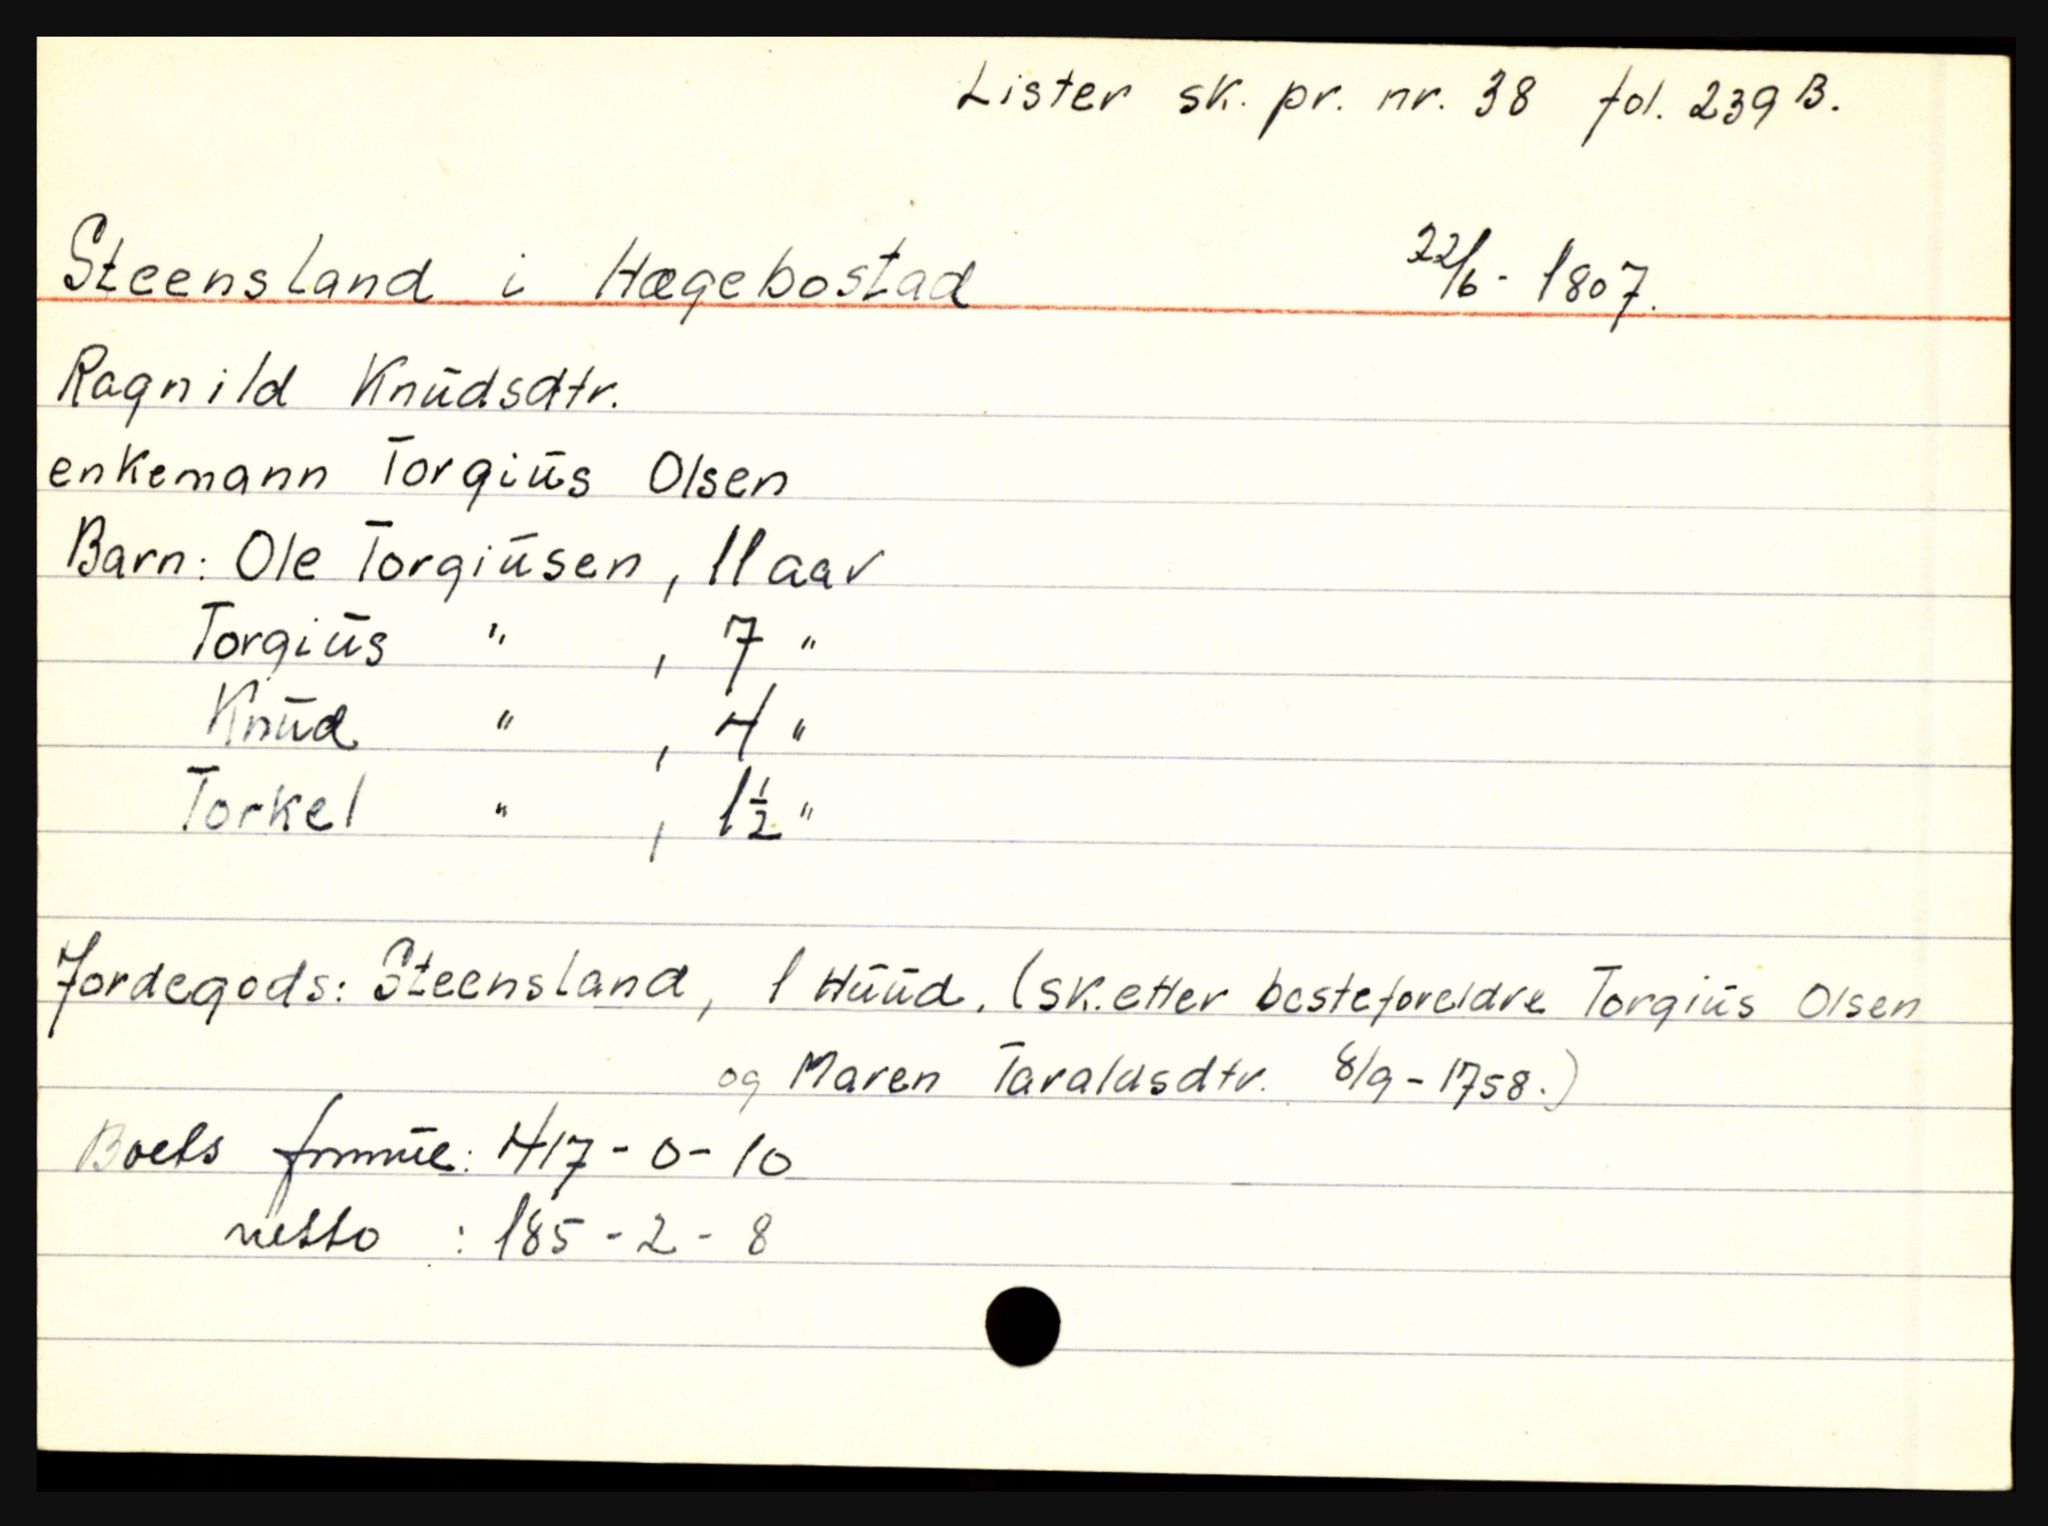 Lister sk. pr. nr. 38 fol. 239 B.
Steensland i Hægebostad 22/6 - 1807.
Ragnild Knūdsdtr.
enkemann Torgiūs Olsen
Barn: Ole Torgiūsen, 11 aar
Torgiūs " , 7 "
Knūd " , 4 "
Torkel " , 1½ "
Jordegods: Steensland, 1 Hūūd. (sk. etter besteforeldre Torgiūs Olsen
og Maren Taraldsdtr. 8/9 - 1758.)
Boets formūe: 417 - 0 - 10
netto : 185 - 2 - 8